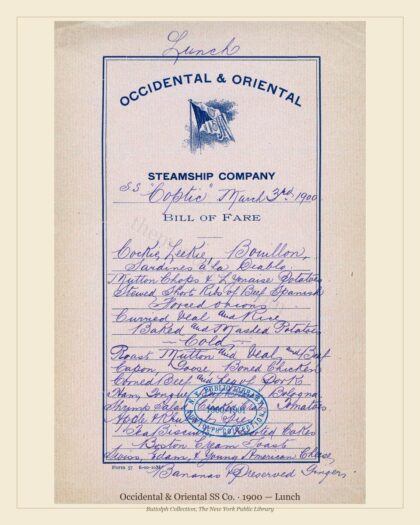 Lunch
OCCIDENTAL & ORIENTAL
STEAMSHIP COMPANY
SS "Coptic" March 3rd 1900
BILL OF FARE
Cockie Leekie, Bouillon,
Sardines a'la Diable
Mutton Chops & L'onaise Potatoes
Stewed Short Ribs of Beef Spanish
Forced onion
Curried Veal and Rice
Baked and Mashed Potatoes
Cold
Roast Mutton and Veal, and Beef
Capon, Goose, Boned Chicken
Corned Beef and Leg of Pork
Ham, Tongue, Bologna
Shrimp Salad Tomatoes
Apple Pie
Tea Biscuits Cakes
Boston Cream Toast
Edam, & Young American Cheese
Form 57
Bananas Preserved Ginger
N.Y. PUBLIC LIBRARY
Occidental & Oriental SS Co. · 1900 — Lunch
Buttolph Collection, The New York Public Library